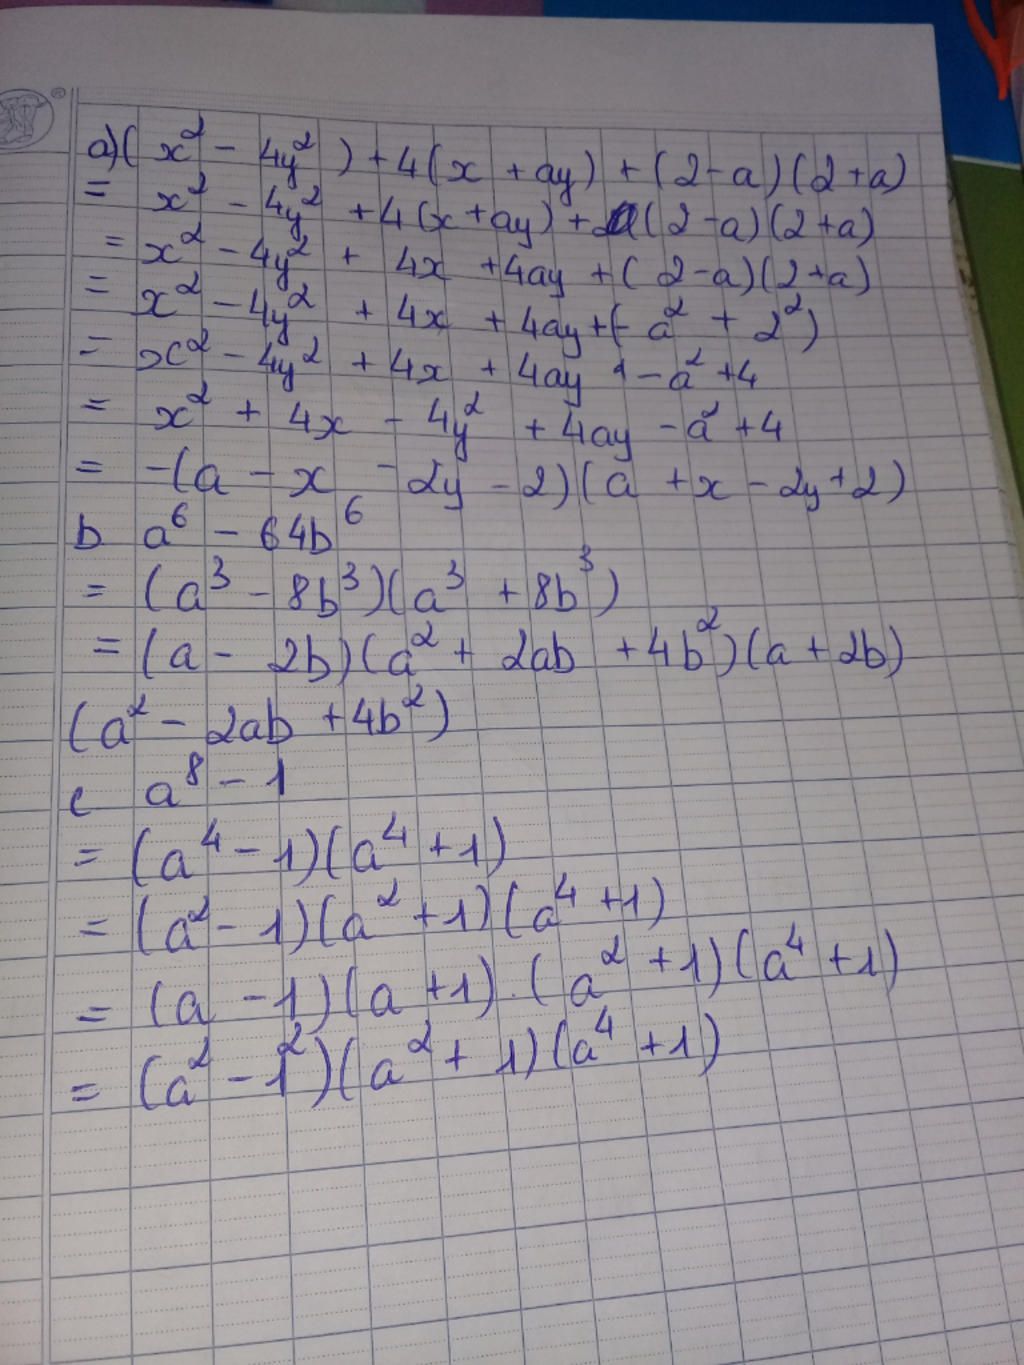 a) ( x² - 4y² ) + 4(x + ay) + (2-a)(2+a)
= x² - 4y² + 4(x+ay) + (2-a)(2+a)
= x² - 4y² + 4x + 4ay + (2-a)(2+a)
= x² - 4y² + 4x + 4ay + (- a² + 2²)
= x² - 4y² + 4x + 4ay - a² + 4
= x² + 4x - 4y² + 4ay - a² + 4
= -(a - x - 2y - 2)(a + x - 2y + 2)
b a⁶ - 64b⁶
= (a³ - 8b³)(a³ + 8b³)
= (a - 2b)(a² + 2ab + 4b²)(a + 2b)
(a² - 2ab + 4b²)
c a⁸ - 1
= (a⁴ - 1)(a⁴ + 1)
= (a² - 1)(a² + 1)(a⁴ + 1)
= (a - 1)(a + 1).(a² + 1)(a⁴ + 1)
= (a² - 1²)(a² + 1)(a⁴ + 1)